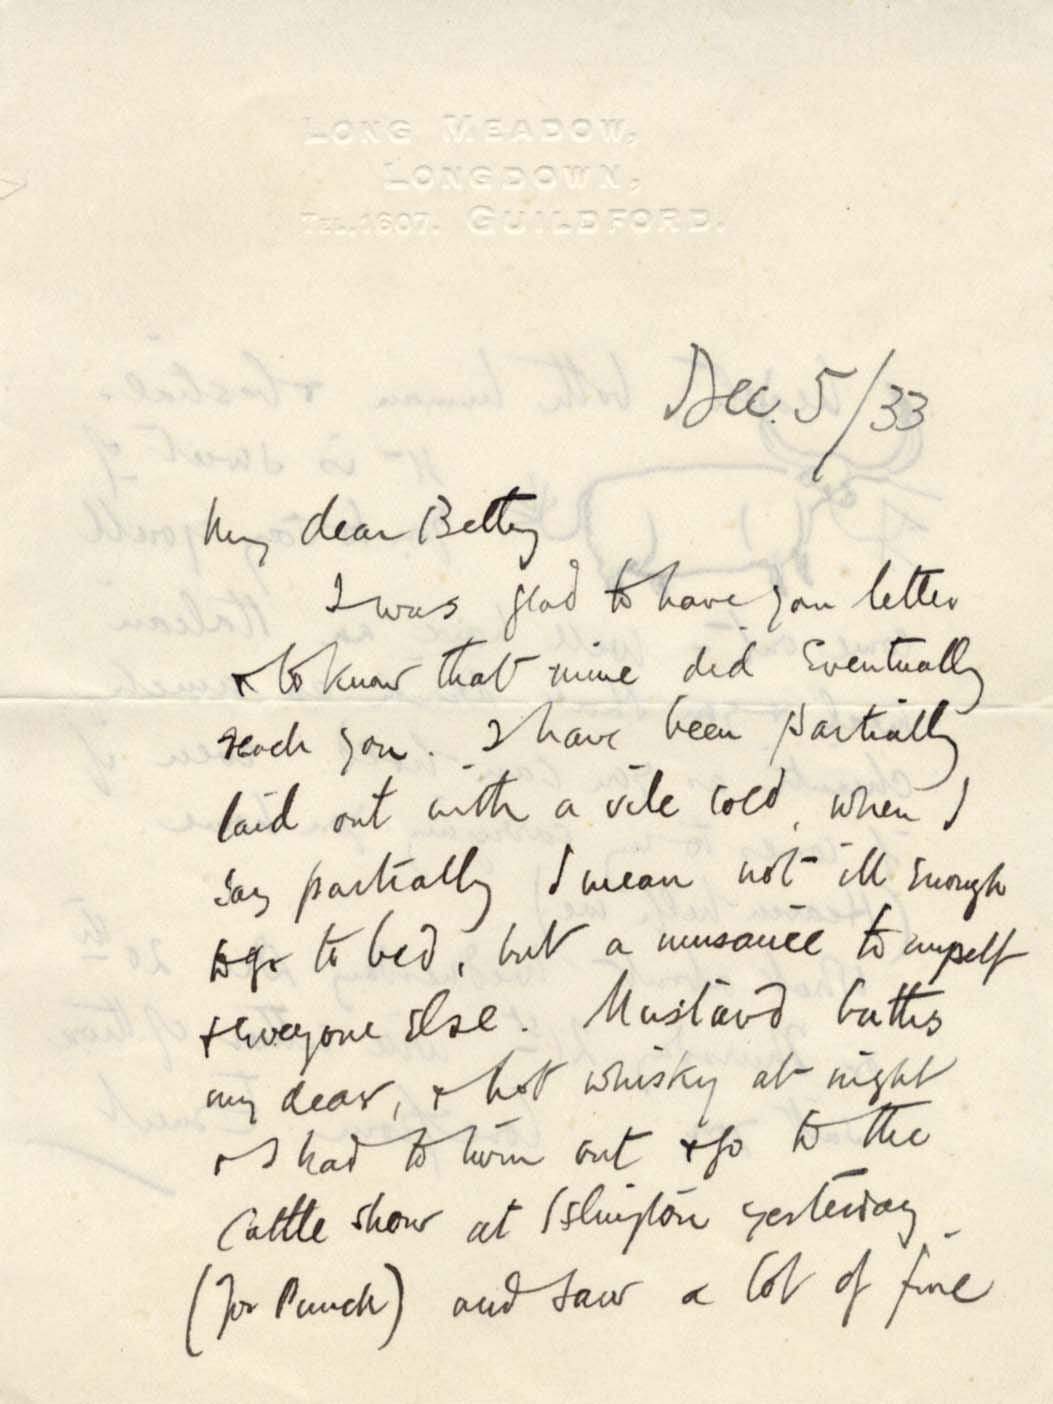 LONG MEADOW,
LONGDOWN,
TEL. 1607. GUILDFORD.
Dec. 5/33
My dear Betty
I was glad to have your letter
& to know that mine did eventually
reach you. I have been partially
laid out with a vile cold, when I
say partially I mean not ill enough
to go to bed, but a nuisance to myself
& everyone else. Mustard baths
my dear, & hot whisky at night
& I had to turn out & go to the
Cattle show at Islington yesterday
(for Punch) and saw a lot of fine